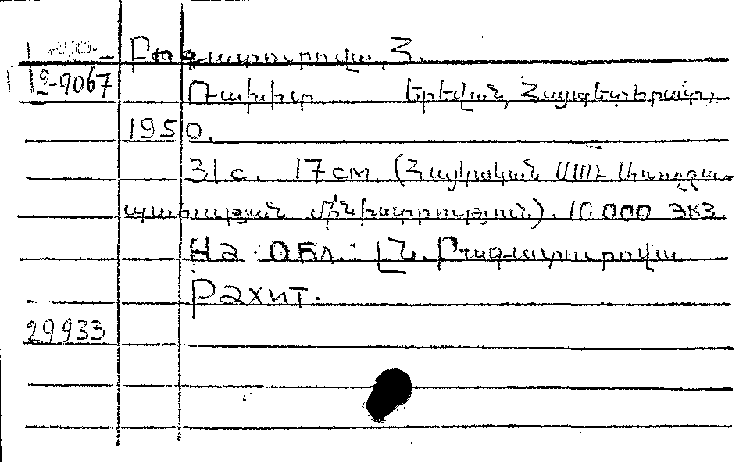 Բագատուրովա, Հ.
12-9067
Ռախիտ Երեվան, Հայպետհրատ,
1950.
31 с. 17 см. (Հայկական ՍՍՌ Առողջա-
պահության մինիստրություն). 10.000 экз.
На обл.: Բագատուրովա
Рахит.
29933